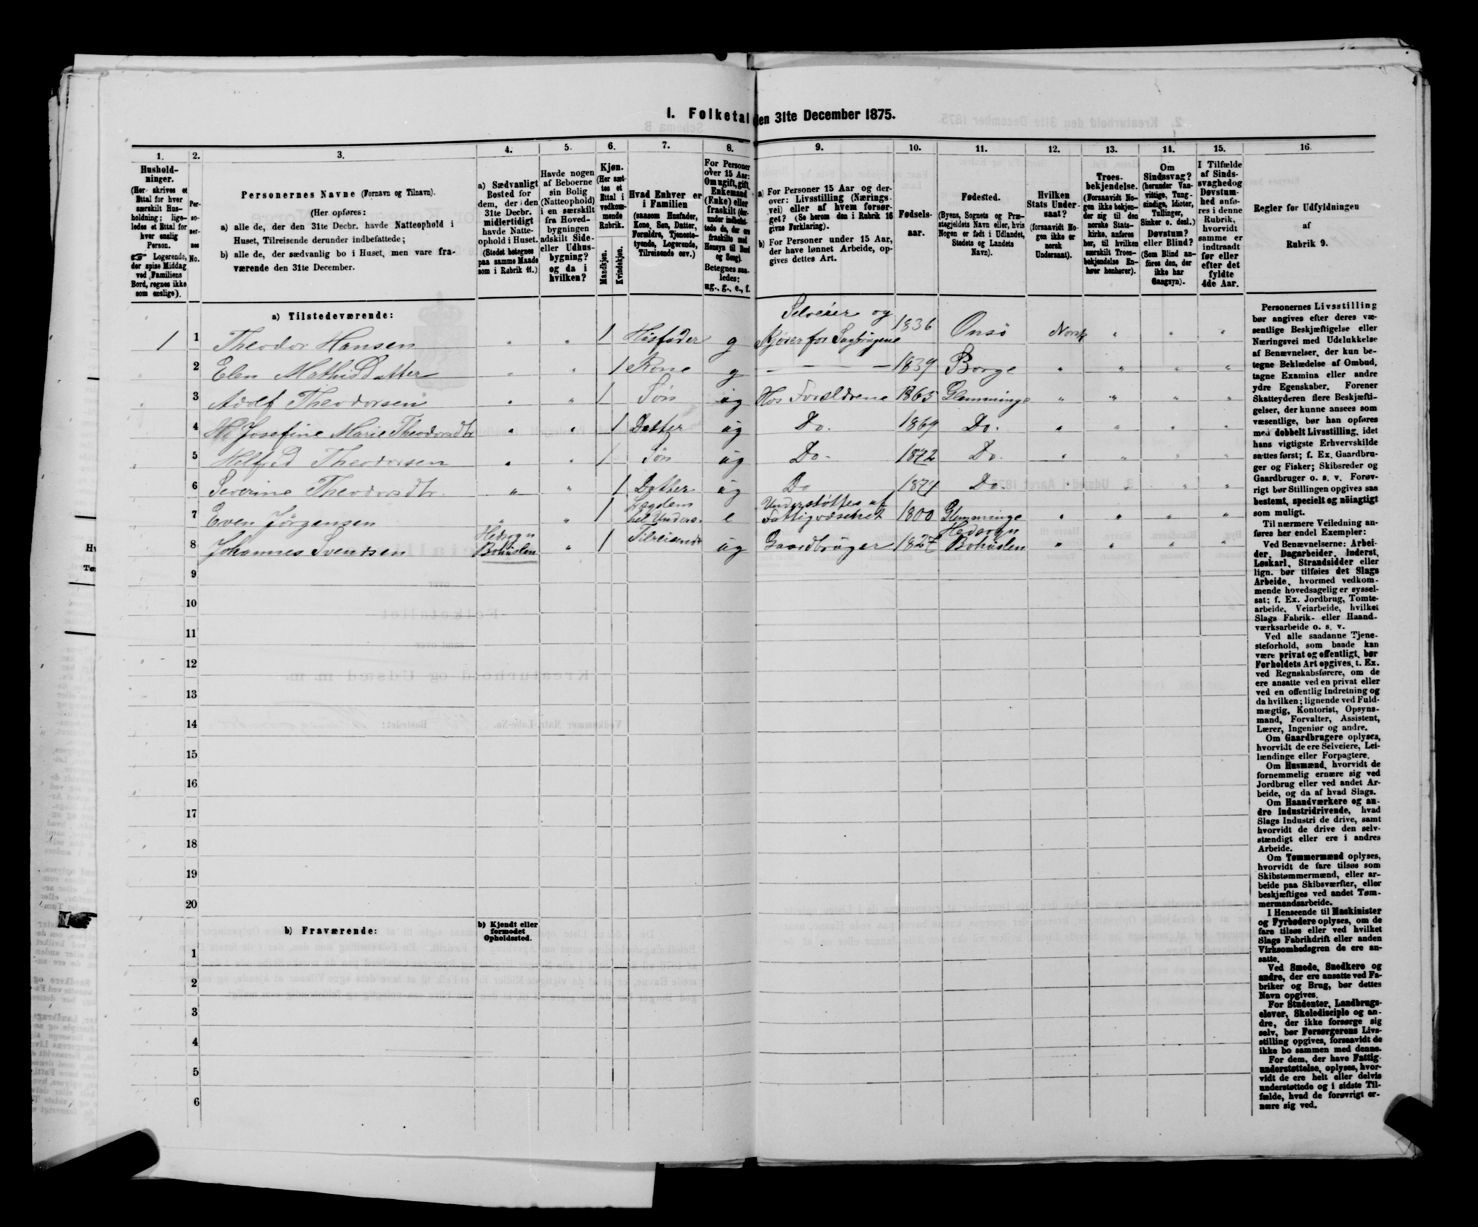 I. Folketal den 31te December 1875.
1. 2. 3. 4. 5. 6. 7. 8. 9. 10. 11. 12. 13. 14. 15. 16.
Hushold-
ninger.
(Her skrives et
Ettal for hver
særskilt Hus-
holdning; lige-
ledes et Ettal for
hver enslig
Person.
☞ Logerende,
der spise Middag
ved Familiens
Bord, regnes ikke
som enslige).
Per-
so-
ner-
nes
No.
Personernes Navne (Fornavn og Tilnavn).
(Her opføres:
a) alle de, der den 31te Decbr. havde Natteophold i
Huset, Tilreisende derunder indbefattede;
b) alle de, der sædvanlig bo i Huset, men vare fra-
værende den 31te December.
a) Sædvanligt
Bosted for
dem, der den
31te Decbr.
midlertidigt
havde Natte-
ophold i Huset.
(Stedet betegnes
paa samme Maade
som i Rubrik 11.)
Havde nogen
af Beboerne
sin Bolig
(Natteophold)
i en særskilt
fra Hoved-
bygningen
adskilt Side-
eller Udhus-
bygning?
og da i
hvilken?
Kjøn.
(Her sæt-
tes et
Ettal i
vedkom-
mende
Rubrik.
Mandkjøn.
Kvindekjøn.
Hvad Enhver er
i Familien
(saasom Husfader,
Kone, Søn, Datter,
Forældre, Tjeneste-
tyende, Logerende,
Tilreisende osv.)
For Personer
over 15 Aar:
Om ugift, gift,
Enkemand
(Enke) eller
fraskilt
Betegnes saa-
ledes:
ug., g., e., f.
a) For Personer 15 Aar og der-
over: Livsstilling (Nærings-
vei) eller af hvem forsør-
get? (Se herom den i Rubrik 16
givne Forklaring).
b) For Personer under 15 Aar,
der have lønnet Arbeide, op-
gives dettes Art.
Fødsels-
aar.
Fødested.
(Byens, Sognets og Præ-
stegjeldets Navn eller, hvis
Nogen er født i Udlandet,
Stedets og Landets
Navn).
Hvilken
Stats Under-
saat?
(forsaavidt No-
gen ikke er
norsk
Undersaat).
Troes-
bekjendelse.
(Forsaavidt No-
gen ikke bekjen-
der sig til den
norske Stats-
kirke, anføres
her, til hvilken
særskilt Troes-
bekjendelse En-
hver henhører).
Om
Sindssvag?
(herunder Van-
vittige, Tung-
sindige, Idioter,
Tullinger,
Sinker o. desl.)
Døvstum?
eller Blind?
(Som Blind an-
føres den, der
ikke har
Gangsyn).
I Tilfælde
af Sinds-
svaghed og
Døvstum-
hed anfø-
res i denne
Rubrik,
hvorvidt
samme er
indtraadt
før eller
efter det
fyldte
4de Aar.
Regler for Udfyldningen
af
Rubrik 9.
a) Tilstedeværende:
1 1 Theodor Hansen 1 Husfader g Selveier og Kjører for 1836 Onsø Norsk
2 Elen Mathisdatter 1 Kone g 1839 Borge
3 Adolf Theodorsen 1 Søn ug Hos Forældrene 1865 Glemminge
4 Josefine Marie Theodorsdtr 1 Datter ug Do. 1869 Do.
5 Theodorsen 1 Søn ug Do. 1872 Do.
6 Severine Theodorsdtr. 1 Datter ug Do 1874 Do.
7 Even Jørgensen 1 e Understøttes af Fattigvæsenet 1800 Glemminge
8 Johannes Svendsen Bohuslen 1 Tilreisende ug Gaardbruger Bohuslen
9
10
11
12
13
14
15
16
17
18
19
20
b) Fraværende:
b) Kjendt eller
formodet
Opholdssted.
1
2
3
4
5
6
Personernes Livsstilling
bør angives efter deres væ-
sentlige Beskjæftigelse eller
Næringsvei med Udelukkelse
af Benævnelser, der kun be-
tegne Beklædelse af Ombud,
tagne Examina eller andre
ydre Egenskaber. Forener
Skatteyderen flere Beskjæfti-
gelser, der kunne ansees som
væsentlige, bør han opføres
med dobbelt Livsstilling, idet
hans vigtigste Erhvervskilde
sættes først; f. Ex. Gaardbru-
ger og Fisker; Skibsreder og
Gaardbruger o. s. v. Forøv-
rigt bør Stillingen opgives saa
bestemt, specielt og nöiagtigt
som muligt.
Til nærmere Veiledning an-
føres her endel Exempler:
Ved Benævnelserne: Arbei-
der, Dagarbeider, Inderst,
Løskarl, Strandsidder eller
lign. bør tilføies det Slags
Arbeide, hvormed vedkom-
mende hovedsagelig er syssel-
sat; f. Ex. Jordbrug, Tomte-
arbeide, Veiarbeide, hvilket
Slags Fabrik- eller Haand-
værksarbeide o. s. v.
Ved alle saadanne Tjene-
steforhold, som baade kan
være privat og offentligt, bør
Forholdets Art opgives, t. Ex.
ved Regnskabsførere, om de
ere ansatte ved en privat eller
ved en offentlig Indretning og
da hvilken; lignende ved Fuld-
mægtig, Kontorist, Opsyns-
mand, Forvalter, Assistent,
Lærer, Ingeniør og andre.
Om Gaardbrugere oplyses,
hvorvidt de ere Selveiere, Lei-
lændinge eller Forpagtere.
Om Husmænd, hvorvidt de
fornemmelig ernære sig ved
Jordbrug eller ved andet Ar-
beide, og da af hvad Slags.
Om Haandværkere og an-
dre Industridrivende, hvad
Slags Industri de drive, samt
hvorvidt de drive den selv-
stændigt eller ere i andres
Arbeide.
Om Tømmermænd oplyses,
hvorvidt de fare tilsøs som
Skibstømmermænd, eller ar-
beide paa Skibsværfter, eller
beskjæftiges ved andet Tøm-
mermandsarbeide.
I Henseende til Maskinister
og Fyrbødere oplyses, om de
fare tilsøs eller ved hvilket
Slags Fabrikdrift eller anden
Virksomhedsgren de ere an-
satte.
Ved Smede, Snedkere og
andre, der ere ansatte ved Fa-
briker og Brug, bør dettes
Navn opgives.
For Studenter, Landbrugs-
elever, Skoledisciple og an-
dre, der ikke forsørge sig
selv, bør Forsørgerens Livs-
stilling opgives, forsaavidt de
ikke bo sammen med denne.
For dem, der have Fattig-
understøttelse, oplyses, hvor-
vidt de ere helt eller delvis
understøttede og i sidste Til-
fælde, hvad de forøvrigt er-
nære sig ved.